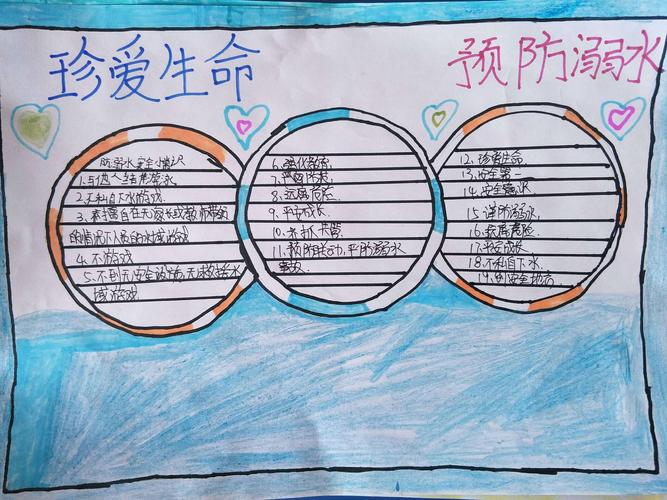 珍爱生命
预防溺水
防溺水安全小常识
1.与他人结伴游水
2.不私自下水游戏
3.不擅自在无家长或教师带领
的情况下人员的水域游戏
4.不游戏
5.不到无安全设施,无救援水
域游戏
6.强化教育,
7.严密防控
8.远离危险
9.平安成长
10.齐抓共管
11.预防联动,平防溺水
事故
12.珍爱生命
13.安全第一
14.安全意识
15.谨防溺水
16.扶离危险
17.平安成长
18.不私自下水.
19.创安全动态